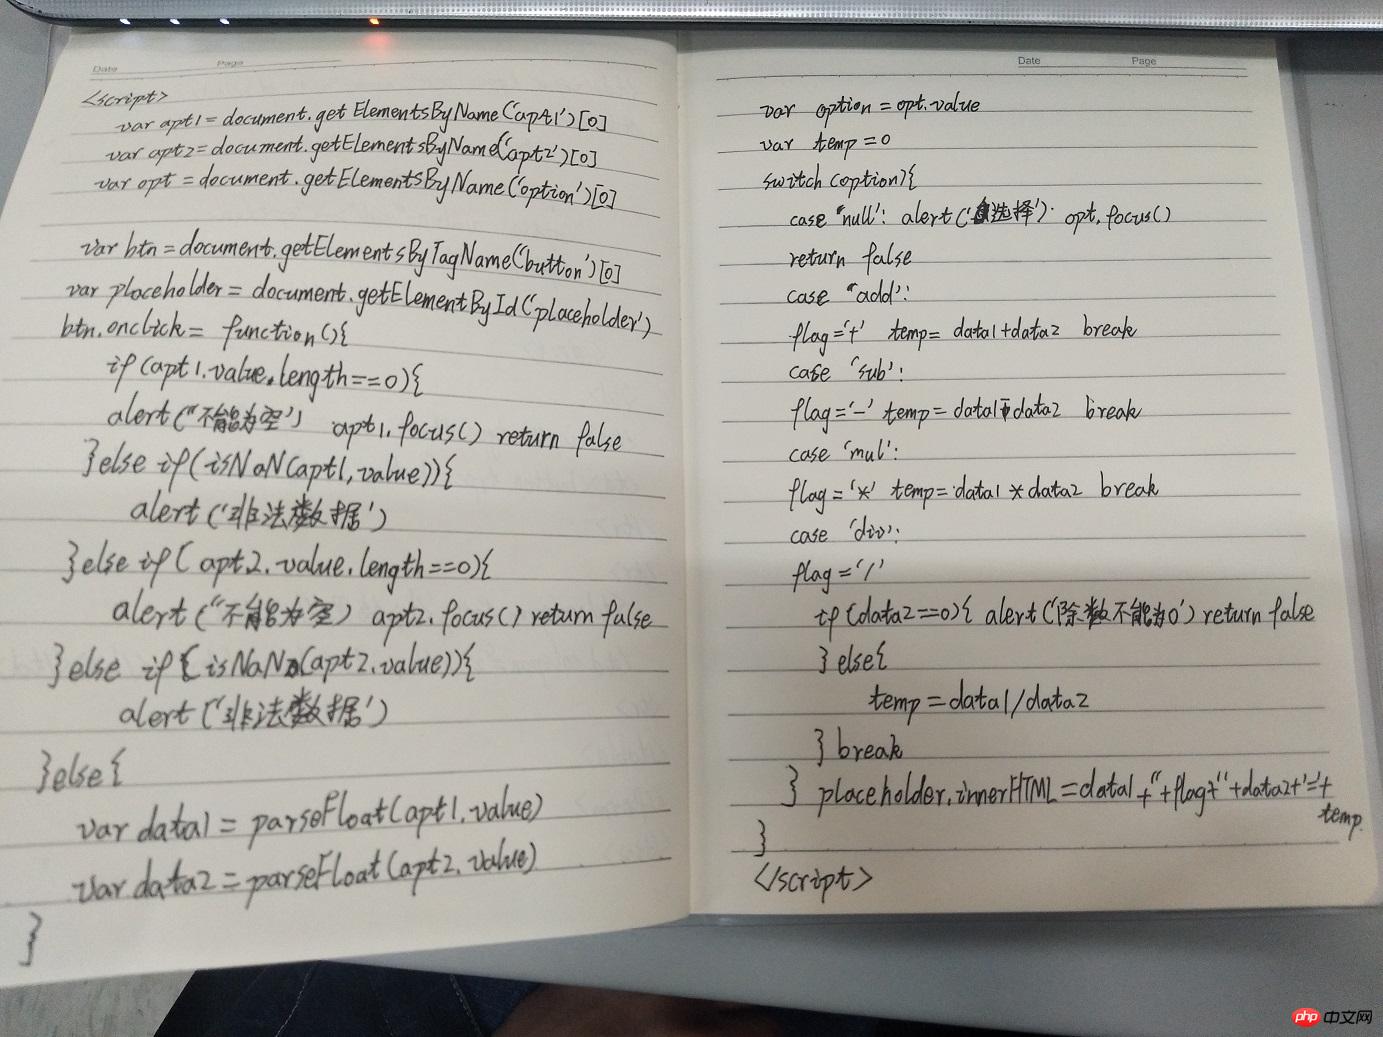 Date Page
<script>
var apt1 = document.getElementsByName('apt1')[0]
var apt2 = document.getElementsByName('apt2')[0]
var opt = document.getElementsByName('option')[0]
var btn = document.getElementsByTagName('button')[0]
var placeholder = document.getElementById('placeholder')
btn.onclick = function(){
if (apt1.value.length==0){
alert("不能为空') apt1.focus() return false
}else if(isNaN(apt1,value)){
alert('非法数据')
}else if( apt2.value.length==0){
alert("不能为空) apt2.focus() return false
}else if( isNaN(apt2.value)){
alert('非法数据')
}else{
var data1 = parseFloat(apt1.value)
var data2 = parseFloat(apt2.value)
}
Date Page
var option = opt.value
var temp = 0
switch (option){
case "null': alert('选择') opt.focus()
return false
case "add':
flag='+' temp= data1+data2 break
case 'sub':
flag='-' temp= data1-data2 break
case 'mul':
flag='*' temp= data1*data2 break
case 'div':
flag='/'
if (data2==0){ alert('除数不能为0') return false
} else{
temp = data1/data2
} break
} placeholder.innerHTML = data1 +'' +flag+'' +data2+'='+
temp
}
</script>
php 中文网